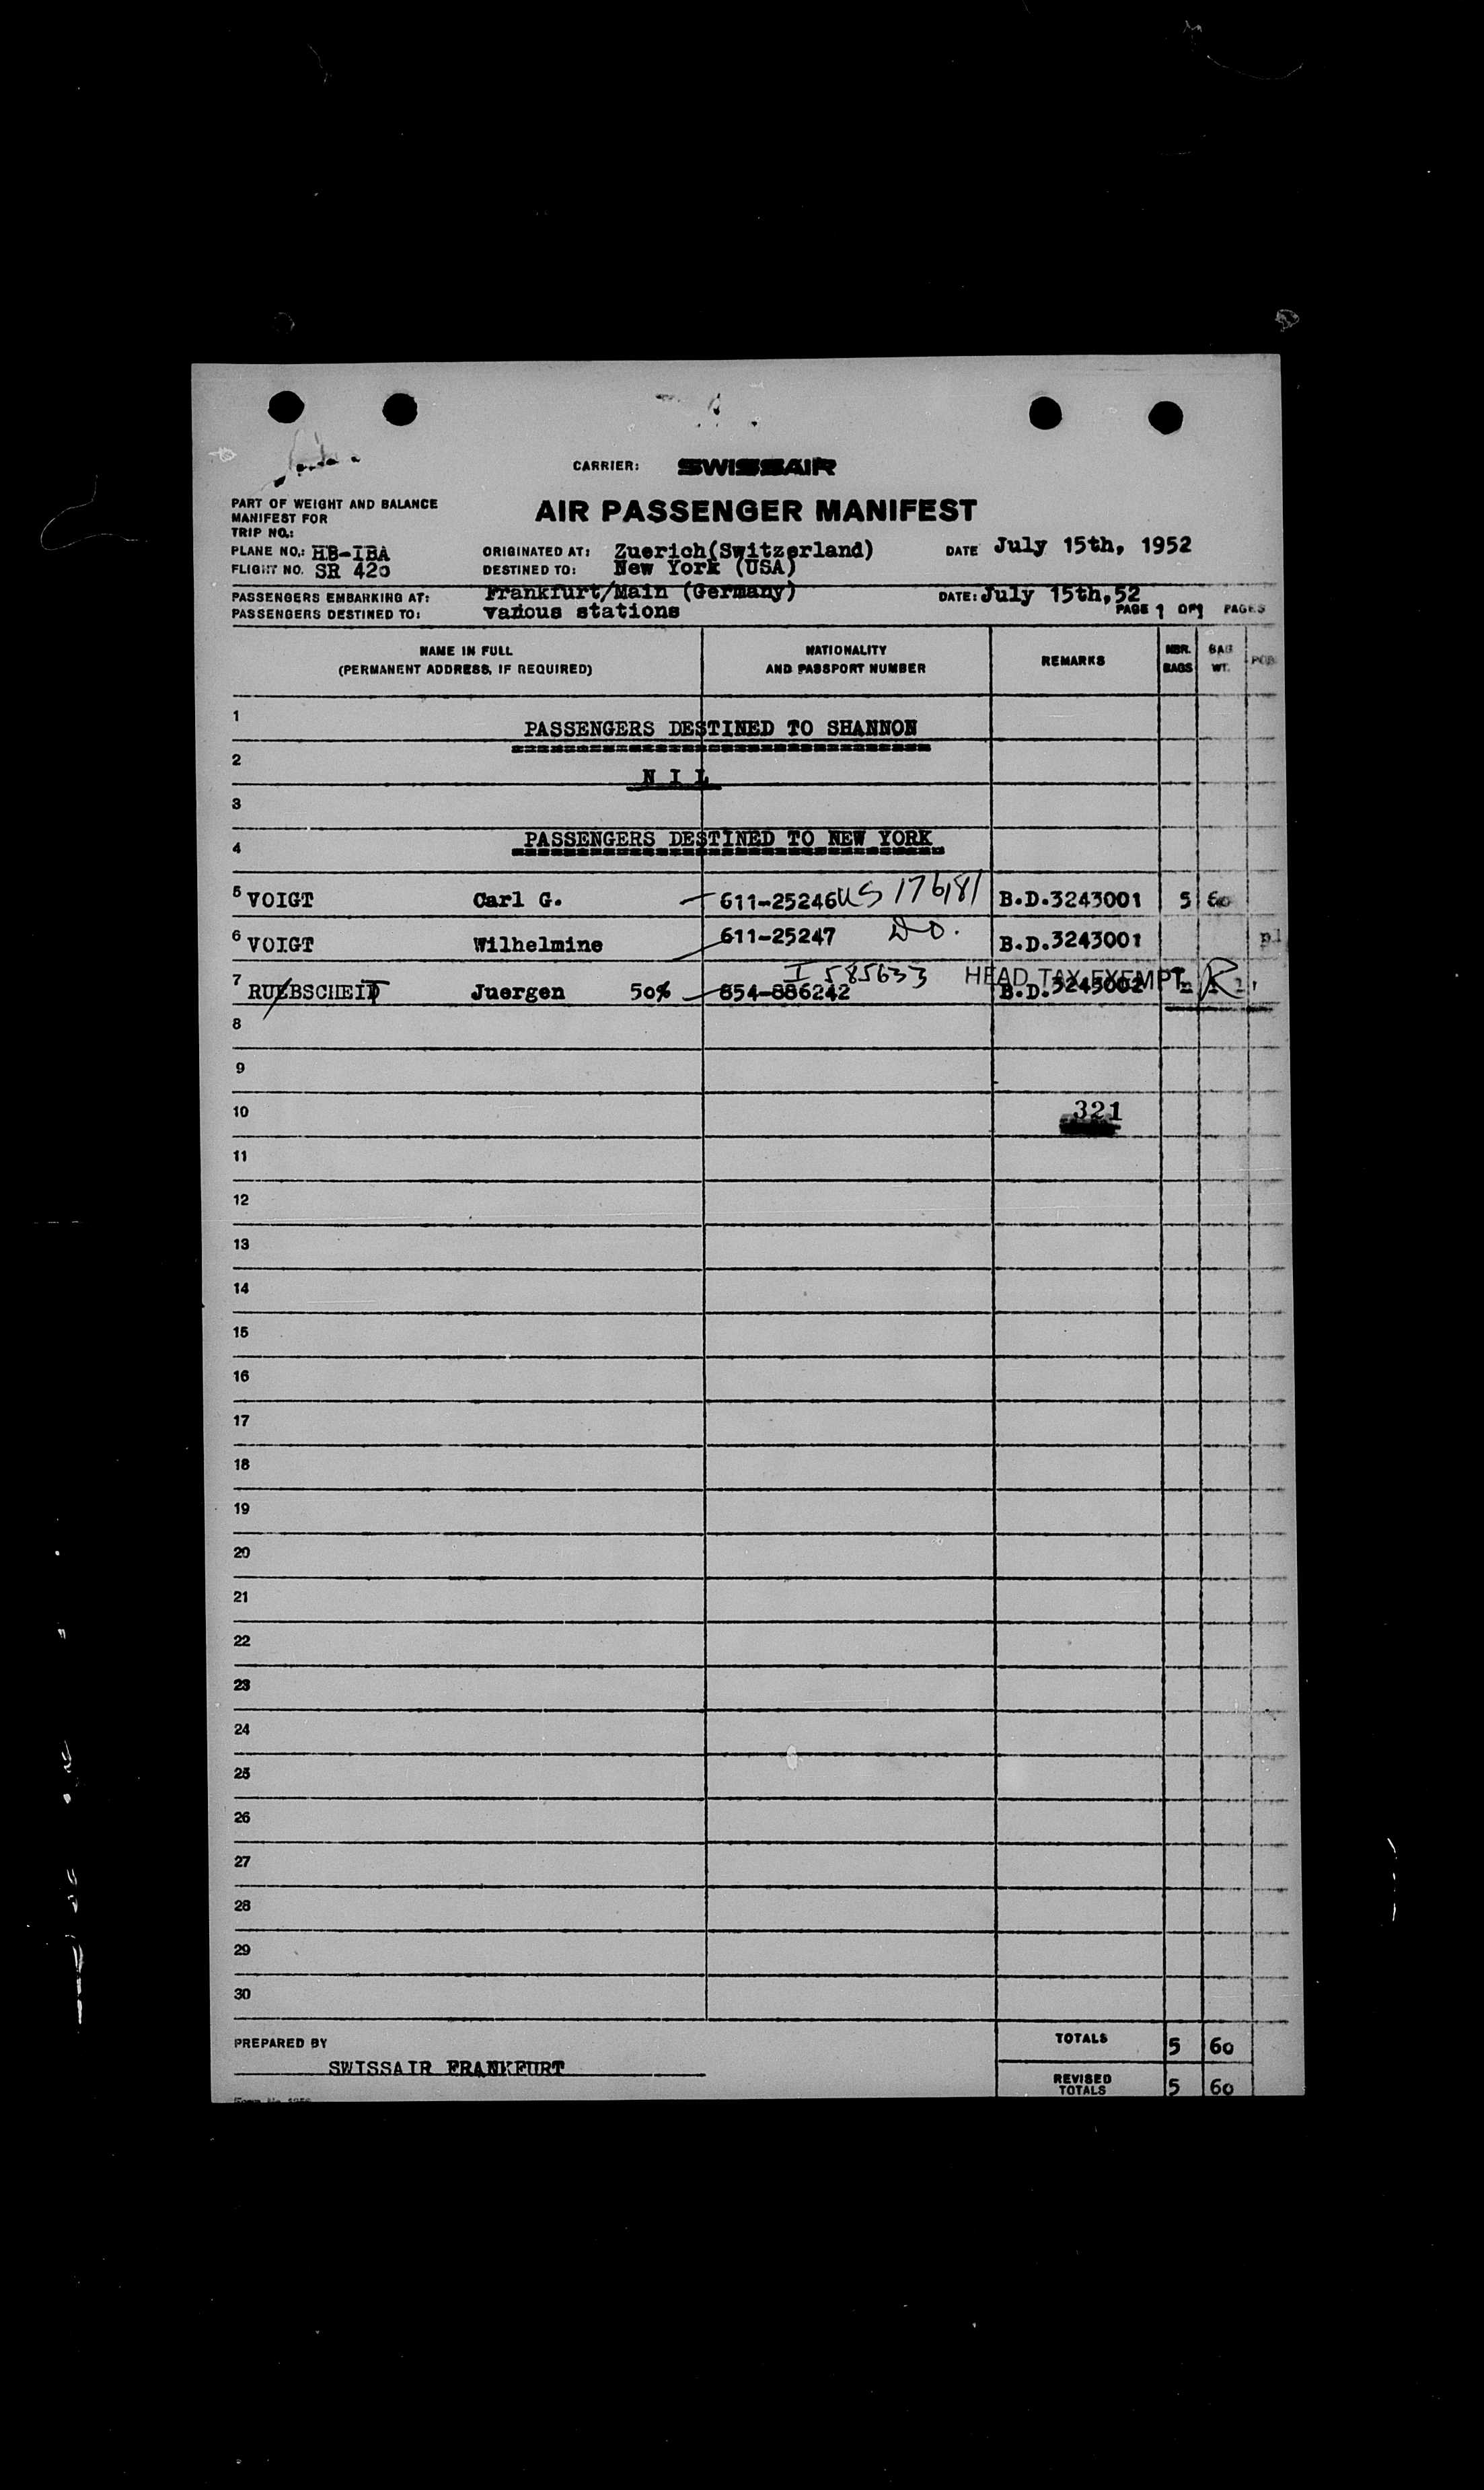 CARRIER: SWISSAIR
PART OF WEIGHT AND BALANCE
MANIFEST FOR
TRIP NO.:
AIR PASSENGER MANIFEST
PLANE NO.: HB-IBA ORIGINATED AT: Zuerich(Switzerland) DATE July 15th, 1952
FLIGHT NO. SR 420 DESTINED TO: New York (USA)
PASSENGERS EMBARKING AT: Frankfurt/Main (Germany) DATE: July 15th,52
PASSENGERS DESTINED TO: various stations PAGE 1 OF 1 PAGES
NAME IN FULL NATIONALITY REMARKS NBR. BAG
(PERMANENT ADDRESS, IF REQUIRED) AND PASSPORT NUMBER BAGS WT. POB
1 PASSENGERS DESTINED TO SHANNON
2 N I L
3
4 PASSENGERS DESTINED TO NEW YORK
5 VOIGT Carl G. 611-25246 US 176181 B.D.3243001 5 60
6 VOIGT Wilhelmine 611-25247 Do. B.D.3243001 pl
I 585633 HEAD TAX EXEMPT
7 RUEBSCHEIT Juergen 50% 854-886242 B.D.3243002 R
8
9
10 321
11
12
13
14
15
16
17
18
19
20
21
22
23
24
25
26
27
28
29
30
PREPARED BY TOTALS 5 60
SWISSAIR FRANKFURT
REVISED TOTALS 5 60